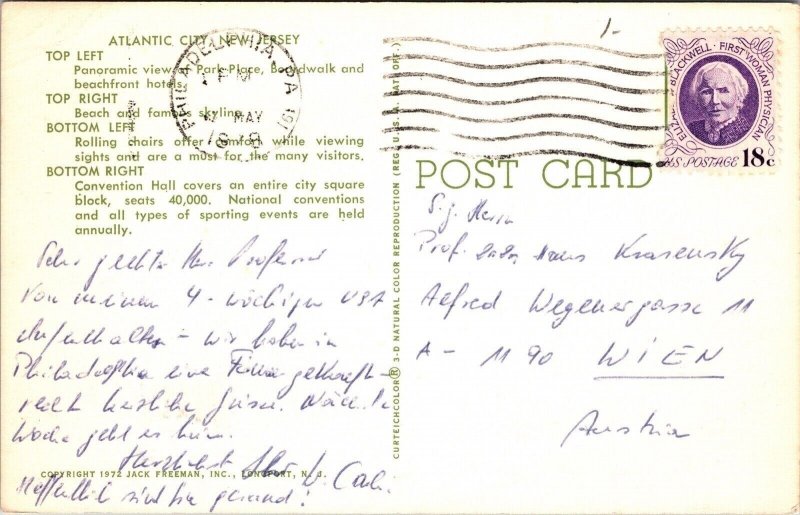 ATLANTIC CITY, NEW JERSEY
TOP LEFT
Panoramic view of Park Place, Boardwalk and
beachfront hotels.
TOP RIGHT
Beach and famous skyline.
BOTTOM LEFT
Rolling chairs offer comfort while viewing
sights and are a must for the many visitors.
BOTTOM RIGHT
Convention Hall covers an entire city square
block, seats 40,000. National conventions
and all types of sporting events are held
annually.
Sehr geehrter Herr Professor
Von meinem 4-wöchigen USA
Aufenthalt - wir haben in
Philadelphia eine Firma gekauft -
recht herzliche Grüsse. Nächste
Woche geht es heim.
Herzlichst Ihr W.
Hoffentlich sind Sie gesund!
COPYRIGHT 1972 JACK FREEMAN, INC., LONGPORT, N. J.
CURTEICHCOLOR® 3-D NATURAL COLOR REPRODUCTION (REG. U.S.A. PAT. OFF.)
PHILADELPHIA, PA
PM
MAY
1-
ELIZABETH BLACKWELL · FIRST WOMAN PHYSICIAN
U.S. POSTAGE 18c
POST CARD
S.g. Herrn
Prof. Hans Krasensky
Alfred Wegenergasse 11
A - 1190 WIEN
Austria